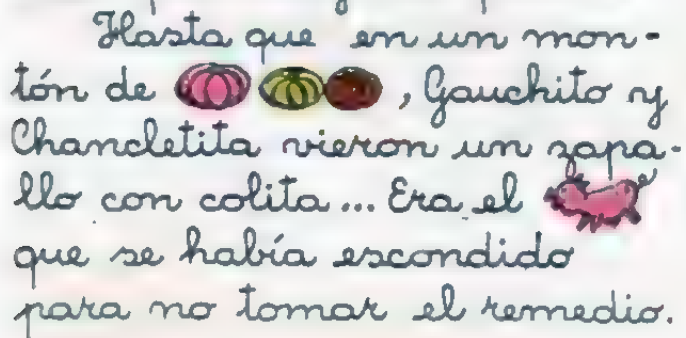 Hasta que en un mon-
tón de , Gauchito y
Chancletita vieron un zapa-
llo con colita... Era el
que se había escondido
para no tomar el remedio.